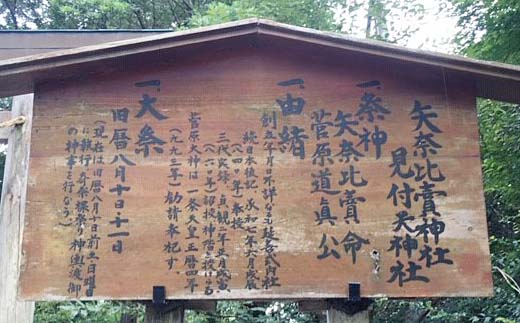 矢奈比賣神社
見付天神社
一、祭神
矢奈比賣命
菅原道眞公
一、由緒
創立年月日不詳なるも延喜式内社
続日本後記 承和七年六月己戌
(八四〇年)奉授
三代実録 貞観二年正月
(八六〇年)詔授神階
菅原天神は一条天皇正暦四年
(九九三年)勧請奉祀す。
一、大祭
旧暦八月十日、十一日
(現在は旧暦八月十日前土日曜日
に執行 舟 神輿渡御
の神事を行なう。)